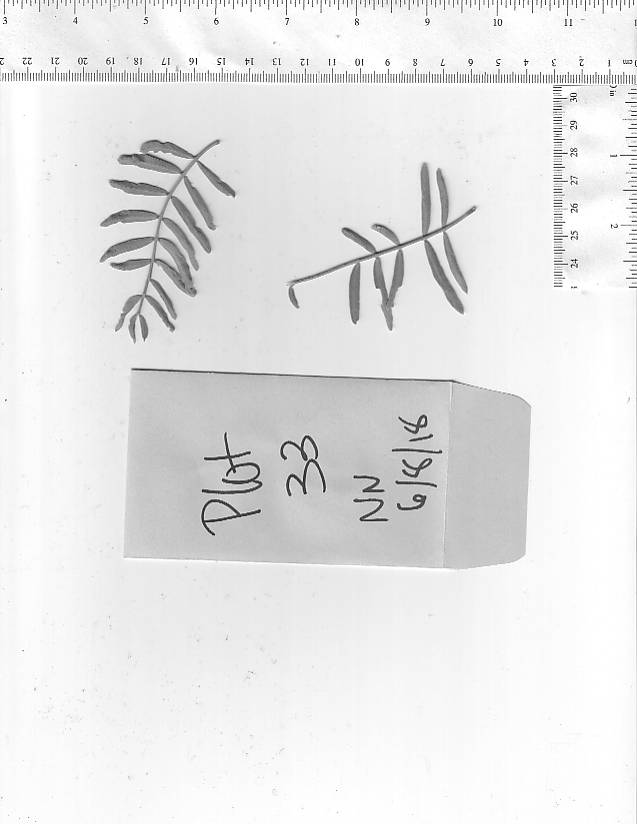 3 4 5 6 7 8 9 10 11
2 22 21 20 19 18 17 16 15 14 13 12 11 10 9 8 7 6 5 4 3 2 1 cm
in
30
29
28
27
26
25
24
1
2
Plot
33
NN
6/8/18